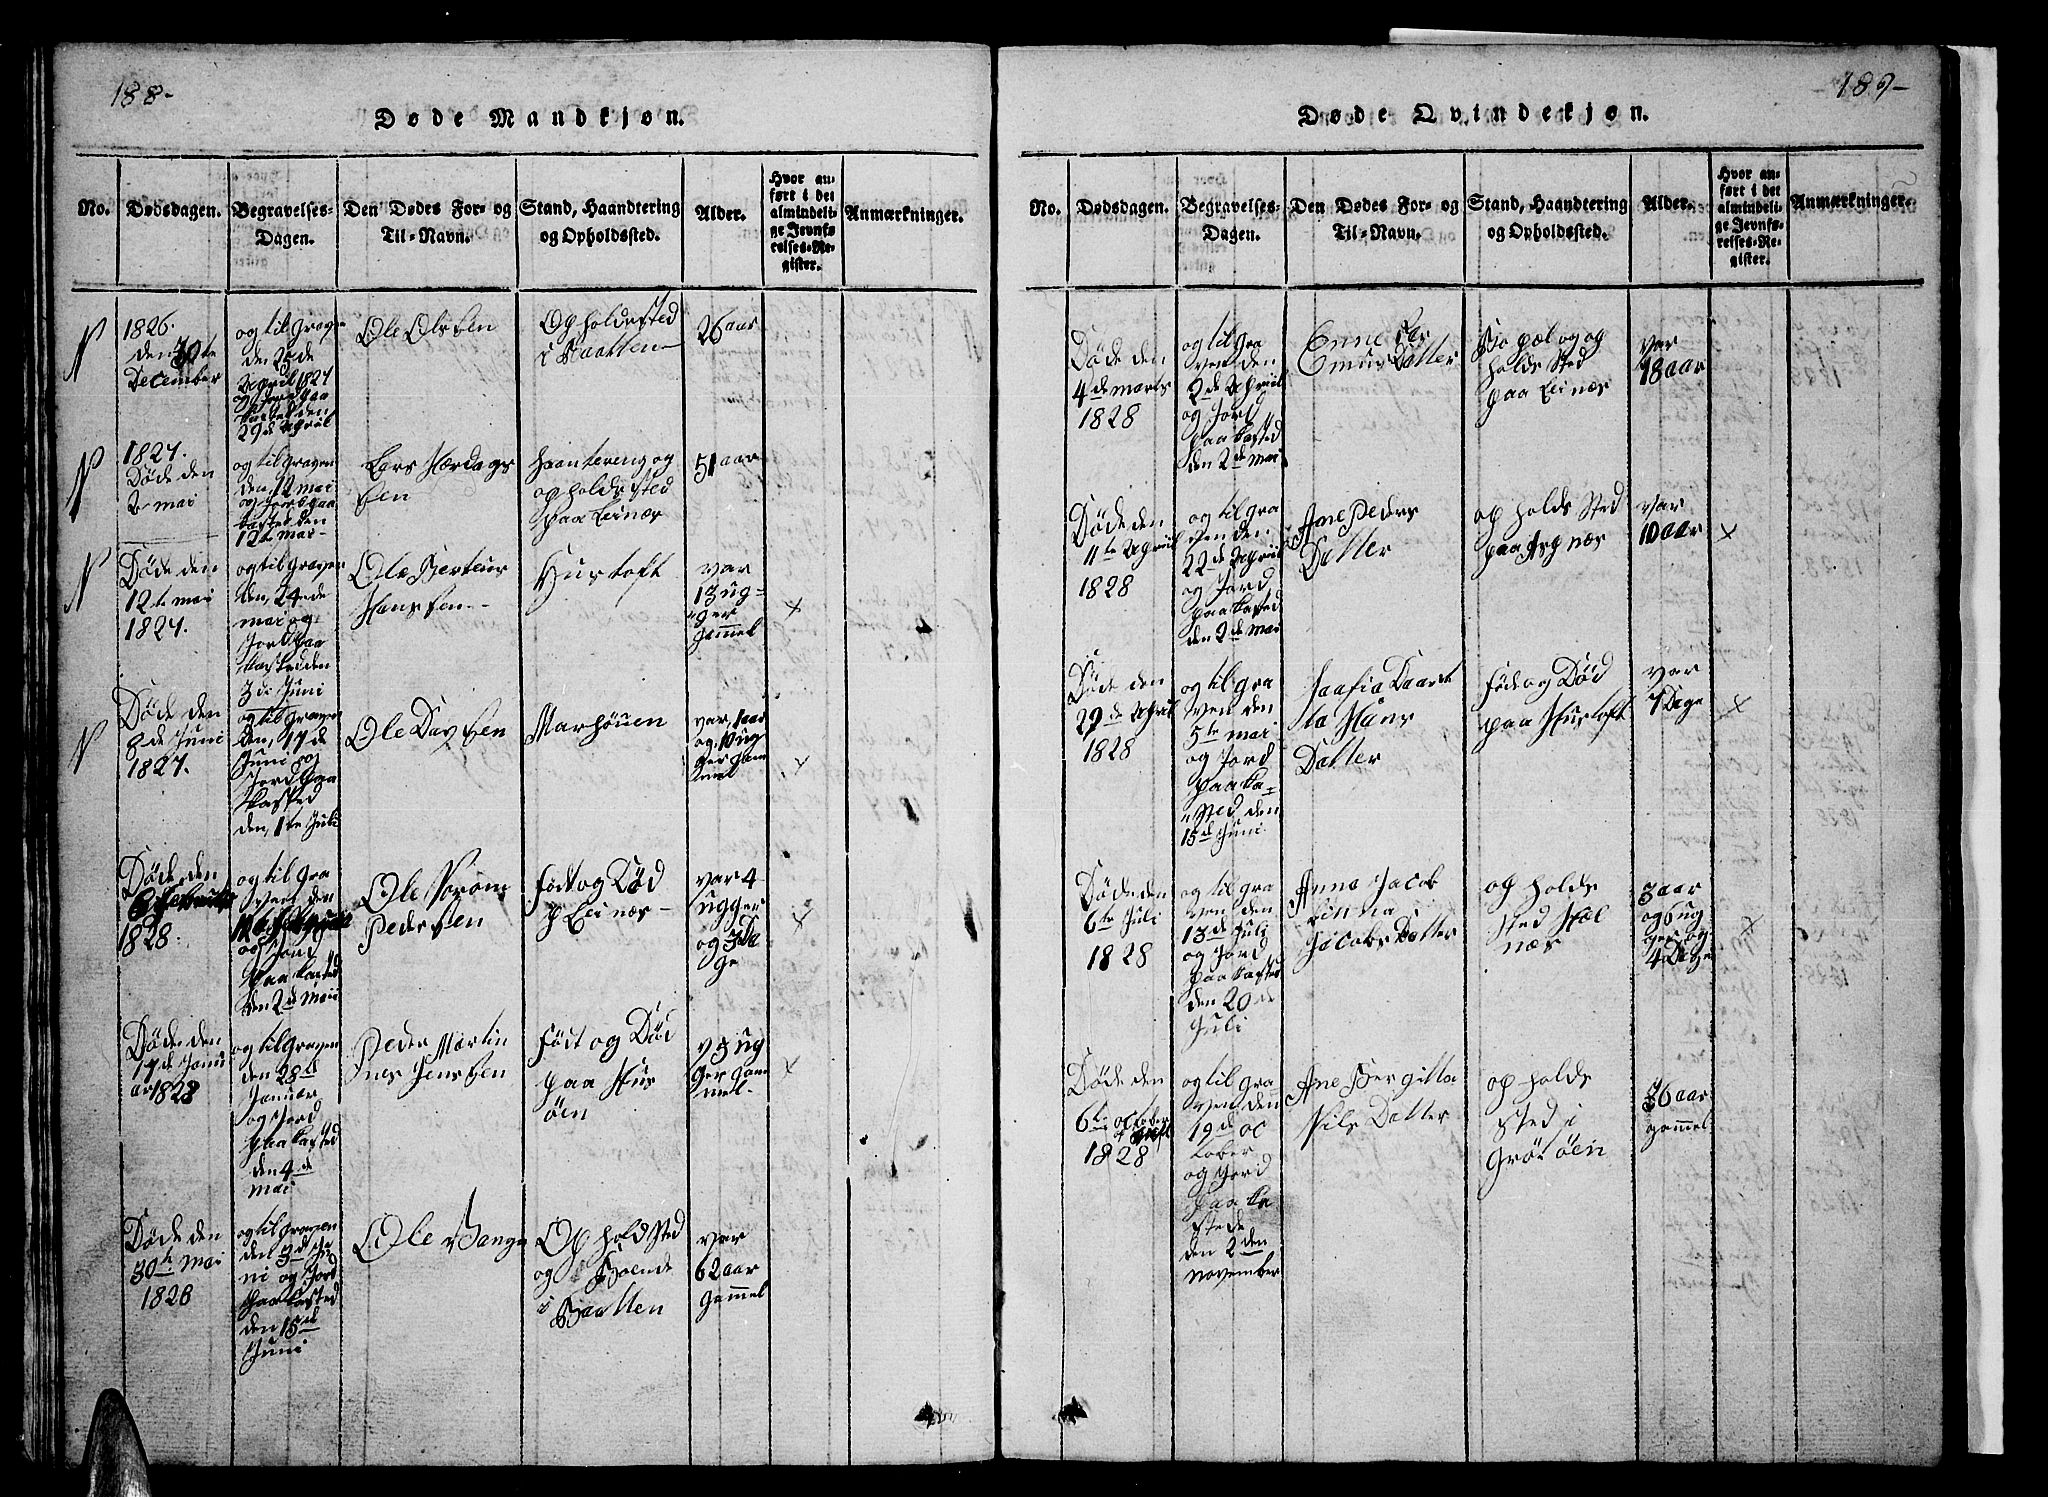 188-
Døde Mandkjøn.
No.
Dødsdagen.
Begravelses-
Dagen.
Den Dødes For- og
Til-Navn.
Stand, Haandtering
og Opholdssted.
Alder.
Hvor an-
ført i det
almindeli-
ge Jevnfø-
relses-Re-
gister.
Anmærkninger.
N
1826.
den 30te
December
og til Graven
den 25de
April 1827
og Jord paa
kasted den
29de April
Ole Olssen
Opholdssted
i Baatten
26 aar
N
1827.
Døde den
2 mai
og til Graven
den 12 mai
og Jord paa
kasted den
12te mai
Lars Hardags
sen
haantereng og
opholds sted
paa Leinæs
51 aar
N
Døde den
12te mai
1827.
og til Graven
den 24nde
mai og
Jord paa
kasted den
3de Juni
Ole Berteus
Hanssen
Hustoft
var
13 ug-
ger
gammel
x
N
Døde den
8de Juni
1827.
og til Graven
den, 17de
Juni og
Jord paa
kasted
den, 1te Juli
Ole Davssen
Marhøuen
var, 1 aar
og, 10 ug
ger gam
mel
x
Døde den
1828.
og til Gra
ven den
og Jord
paa kasted
den 2de Maii
Ole
Pederssen
født og Død
p Leinæs
var 4
ugger
og 3 Da
ge
x
Døde den
17de Janu
ar 1828
og til Graven
den 28de
Januar
og Jord
paa kasted
den 4de
mai
Peder Martin
nes Jenssen
født og Død
paa Hus
øen
v 5 ug
ger gam
mel.
x
Døde den
30te mai
1828
og til Graven
den 3de Ju
ni og Jord
paa kasted
den 15de
Juni
Ole Bange
Opholdssted
og Boende
i Baatten
var
62 aar
gammel
189-
Døde Qvindekjøn.
No.
Dødsdagen.
Begravelses-
Dagen.
Den Dødes For- og
Til-Navn.
Stand, Haandtering
og Opholdssted.
Alder.
Hvor an-
ført i det
almindeli-
ge Jevnfø-
relses-Re-
gister.
Anmærkninger.
Døde den
4de marts
1828
og til Gra
ven den
2de April
og Jord
paa kasted
den 2de mai
Enne
Datter
og op
holds Sted
paa Leinæs
var
18 aar
Døde den
11te April
1828
og til Gra
ven den
22de April
og Jord
paa kasted
den 2de mai
Ane Peders
Datter
op holds Sted
paa Aspnæs
var
10 aar
x
Døde den
29de April
1828
og til Gra
ven den
5te mai
og Jord
paa ka-
sted den
15de Juni
Saafia Daart
ta Hans
Datter
føde og Død
paa Hustoft
var
7 Dage
x
Døde den
6te Juli
1828
og til Gra
ven den
13de Juli
og Jord
paa kasted
den 20de
Juli
Anna Jacob
Linna
Jacobs Datter
op holds
sted Høl
næs
3 aar
og 6 ug
ger og
4 Dage
x
Døde den
6te october
1828
og til Gra
ven den
19de oc
tober
og Jord
paa ka
stede
den 2den
november
Ane Bergitta
Nils Datter
op holds
sted i
Grøtøen
36 aar
gammel